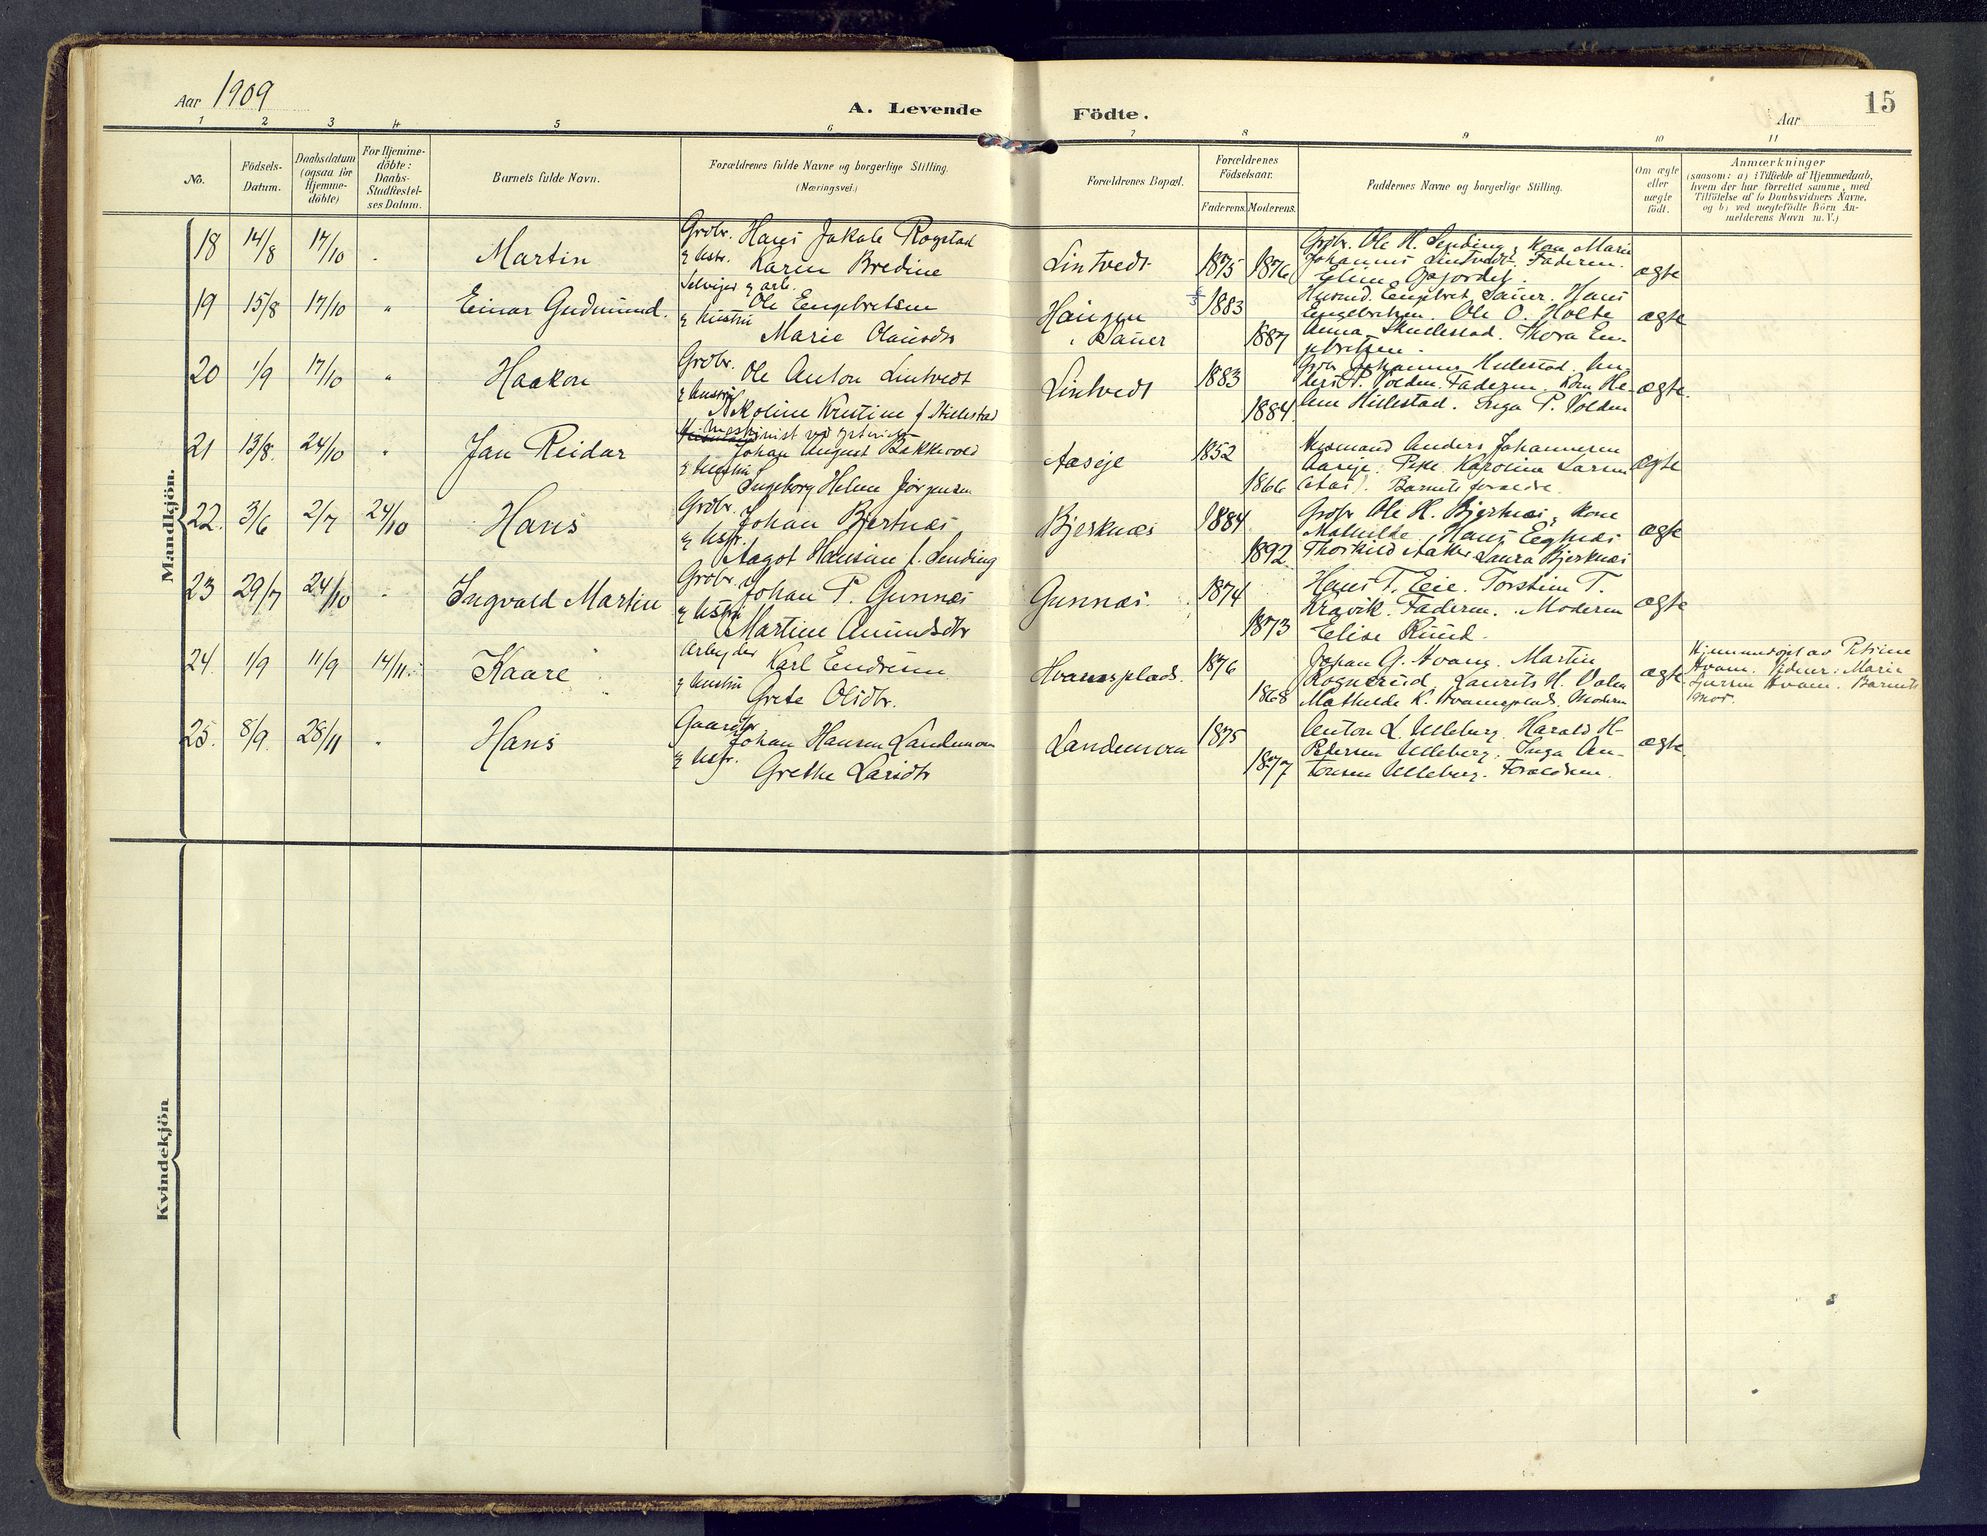 Aar 1909
A. Levende
Födte.
15
Aar
1 2 3 4 5 6 7 8 9 10 11
No.
Födsels-
Datum.
Daabsdatum
(ogsaa for
Hjemme-
döbte)
For Hjemme-
döbte:
Daabs-
Stadfæstel-
ses Datum.
Barnets fulde Navn.
Forældrenes fulde Navne og borgerlige Stilling.
(Næringsvei.)
Forældrenes Bopæl.
Forældrenes
Födselsaar.
Faderens. Moderens.
Faddernes Navne og borgerlige Stilling.
Om ægte
eller
uægte
födt.
Anmærkninger
(saasom: a) i Tilfælde af Hjemmedaab,
hvem der har forrettet samme, med
Tilföielse af to Daabsvidners Navne,
og b) ved uægtefödte Börn An-
melderens Navn m. V.)
Mandkjön.
18 14/8 17/10 Martin
Grdbr. Hans Jakob Rogstad
& Hstr. Karen Bredine
Lintvedt
1875 1876
Grdbr. Ole H. Sending, Kone Marie
Johannes Lintvedt. Faderen.
Eline Opjordet.
ægte
19 15/8 17/10 " Einar Gudmund.
Selveier & arb.
Ole Engebretsen
& Hustru
Marie Olausdtr
Haugen
i Sauer
1883
1887
Husmd. Engebret Sauer. Hans
Engebretsen. Ole O. Holte
Anna Skulestad. Thora En-
gebretsen.
ægte
20 1/9 17/10 " Haakon
Grdbr. Ole Anton Lintvedt
& Hustru
Nikoline Kristine f. Hillestad
Lintvedt
1883
1884
Grdbr Johannes Hillestad. An-
ders P. Volden. Faderen. Kone He-
lene Hillestad. Inga P. Volden
ægte.
21 13/8. 24/10 " Jan Reidar
Maskinist ved
Johan August Bakkevold
& Hustru
Ingeborg Helene Jørgensen
Aaseje
1852
1866
Husmand Anders Johannesen
Aaseje. Pike Karoline Larsen
Barnets forældre.
ægte
22. 3/6 2/7 24/10 Hans
Grdbr. Johan Bjerknæs
& Hstr.
Aagot Hansine f. Sending
Bjerknæs
1884
1892
Grdbr Ole H. Bjerknæs, Kone
Mathilde. Hans
Thorkild Laura Bjerknæs
ægte
23 29/7 24/10 " Ingvald Martin
Grdbr. Johan P. Gunnæs
& Hstru
Martine Amundsdtr
Gunnæs.
1874
1873
Hans T. Eie. Torstein T.
Kravik. Faderen. Moderen
Elise Ruud.
ægte
24. 1/9 11/9 14/11. Kaare
Arbejder Karl Endresen
& Hustru
Grete Olsdtr.
Hvamsplads.
1876
1868
Johan G. Hvam. Martin
Rognerud. Laurits H.
Mathilde K. Hvamsplads. Moderen
ægte
Hjemmedøpt av Petrine
Hvam. Vidner. Marie
Hvam. Barnets
Mor.
25. 8/9. 28/11 " Hans
Gaardbr.
Johan Hansen Landemoen
& Hstr.
Grethe Larsdtr
Landemoen
1875
1877
Anton L. Ulleberg. Harald H.
Pedersen Ulleberg. Inga An-
tonsen Ulleberg. Forældrene.
ægte.
Kvindekjön